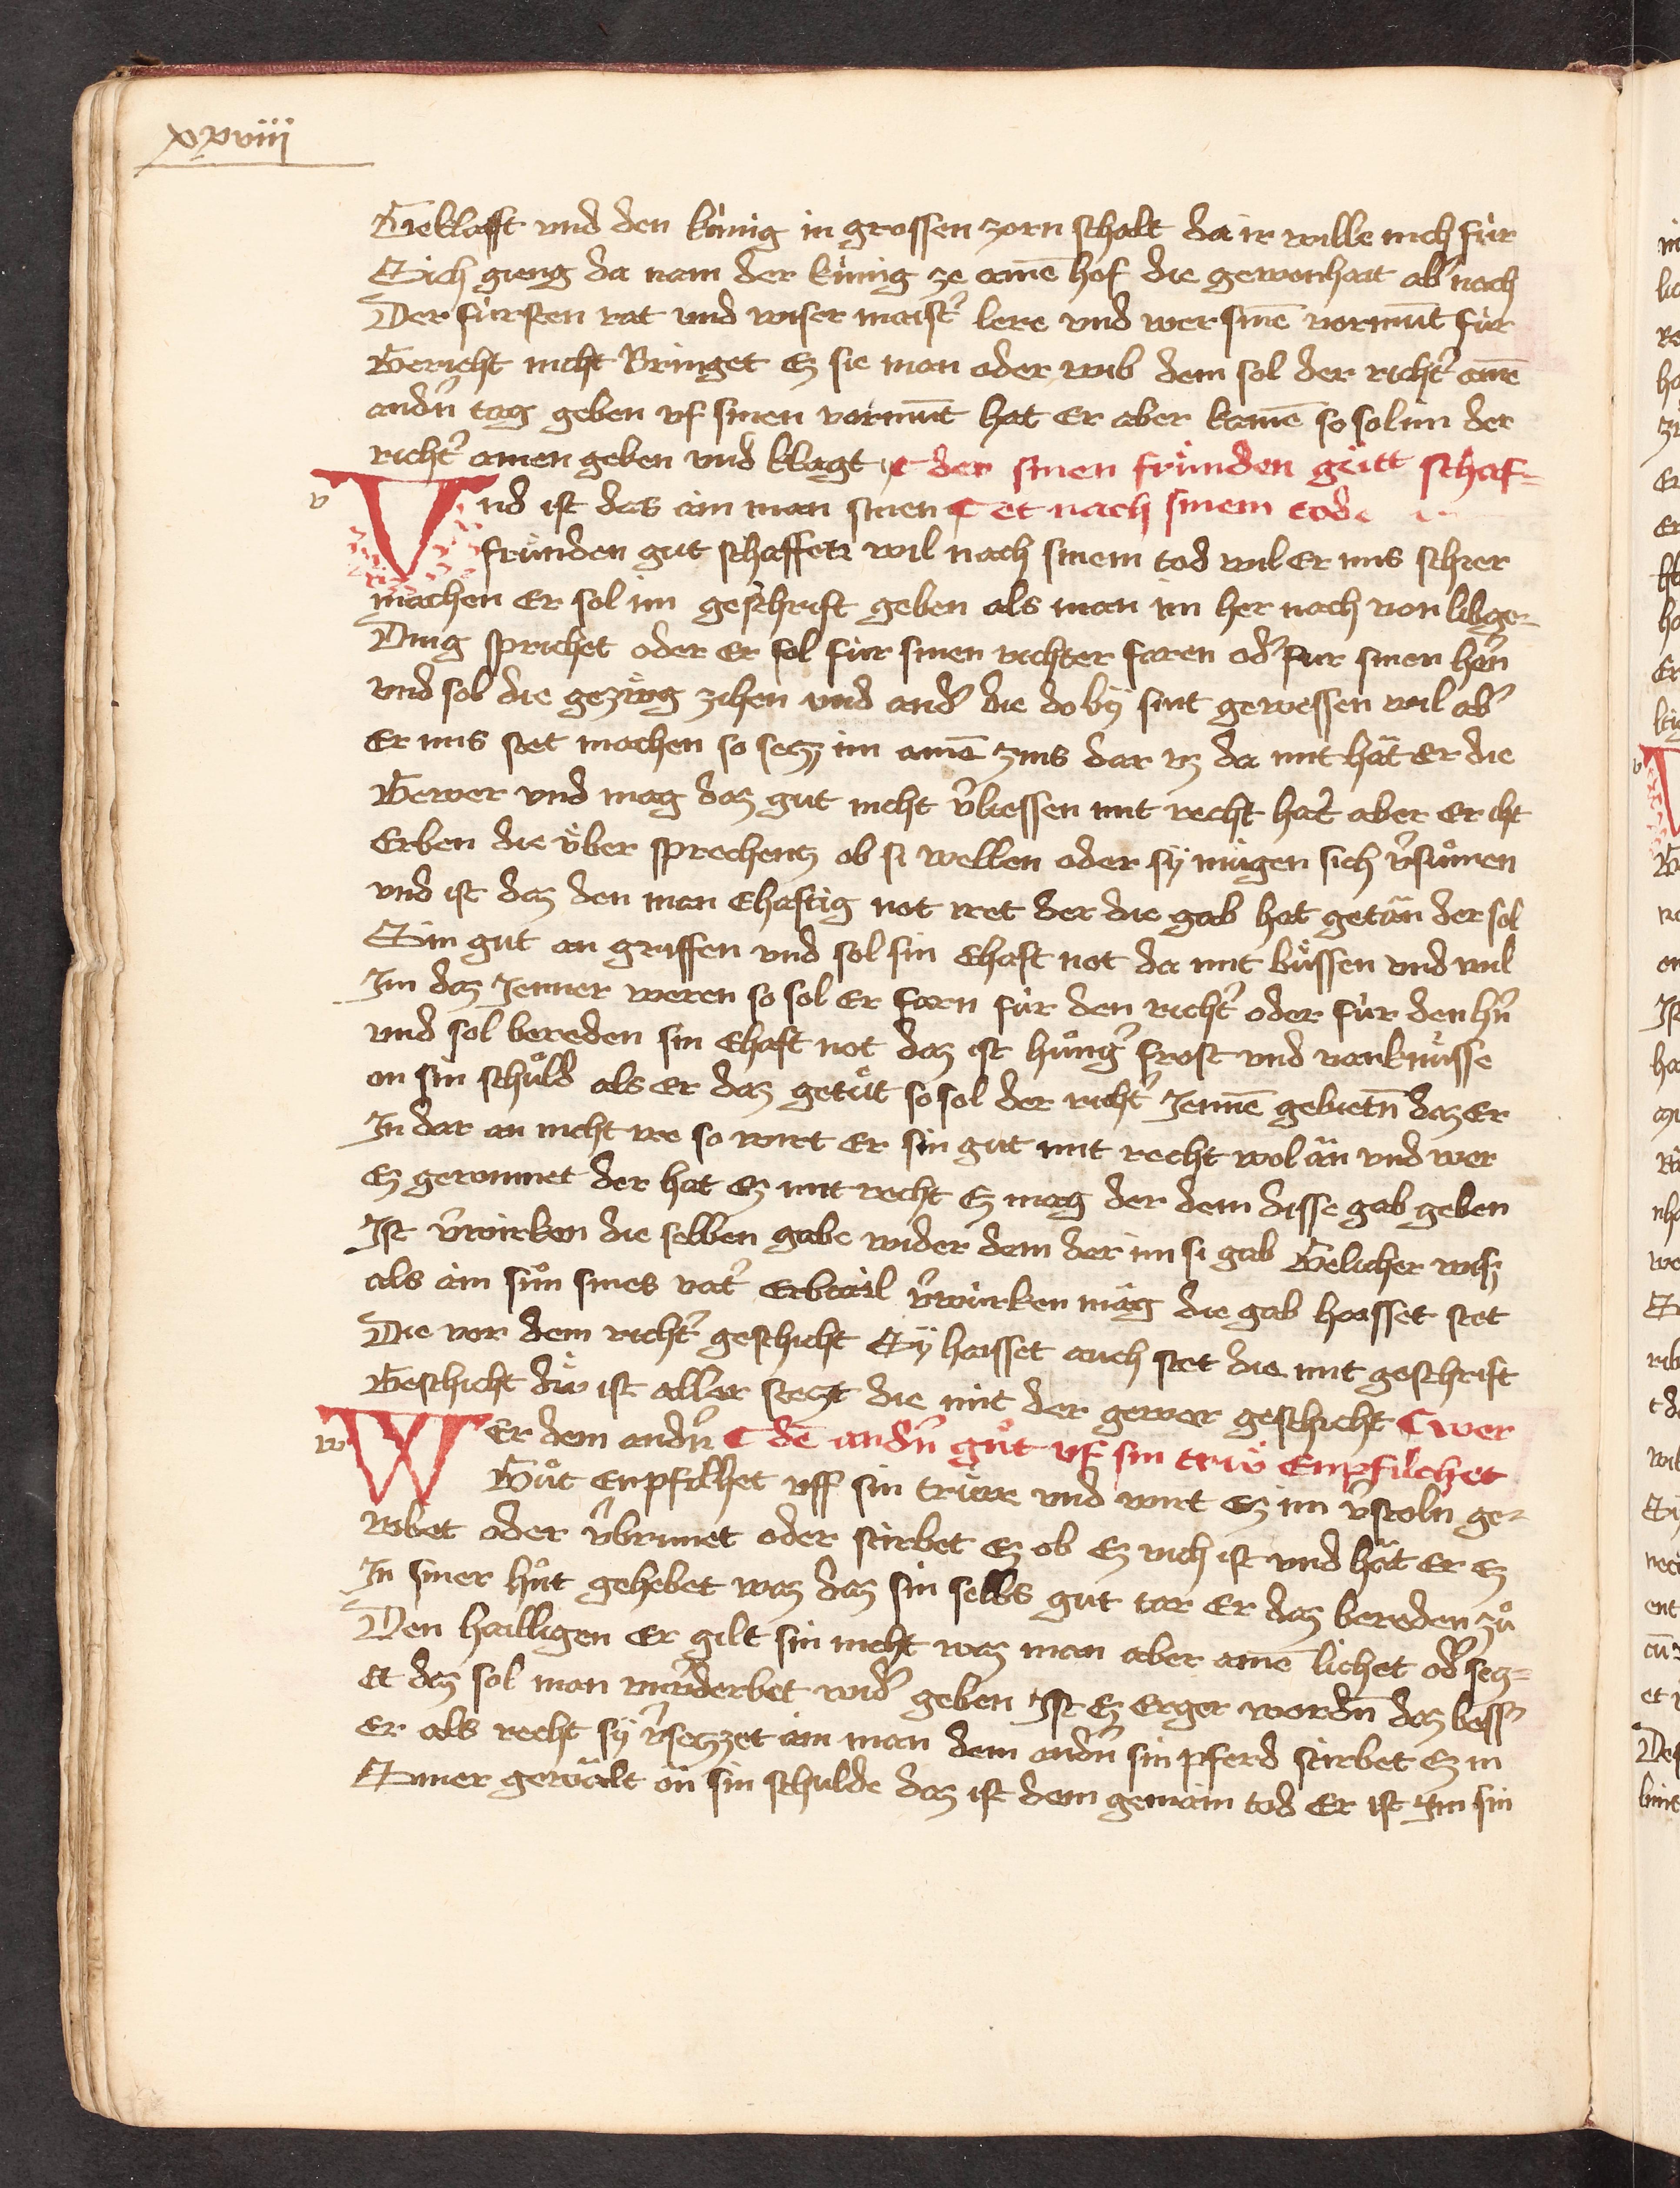 xxviii
Geklafft vnd den kúnig in grossen zorn schalt da ir wille nich fúr
Sich gieng da nam der kúnig ze ainē hof die gewonhait ab' nach
Der fúrsten rat vnd wiser maist' lere vnd wer sinē vormūt fúr
Gericht nicht Bringet Ez sie man oder wib dem sol der richt' ainē
andn̄ tag geben vf sinen vormūt hat Er aber kainē so sol im der
richt' ainen geben vnd klagt ¶ der sinen frúnden gůtt schaf-
v
Vnd ist das ain man sinen ¶ et nach sinem tode
frúnden gut schaffen wil nach sinem tod wil Er ims sicher
machen Er sol im geschrift geben als man im her nach von libge-
Ding sprichet oder Er sol fúr sinen richter faren od' fur sinen hēn
vnd sol die gezúg zihen vnd and' die do bÿ sint gewessen wil ab'
Er ims stet machen so setz im ainē zins dar vz da mit hăt Er die
Gewer vnd mag daz gut nicht v'liessen mit recht hat aber Er icht
Erben die úber sprechentz ob si wellen oder sÿ múgen sich v'súmen
vnd ist daz den man Ehaftig not iret der die gab hat getăn der sol
Sin gut an griffen vnd sol sin Ehaft not da mit bůssen vnd wil
Im daz Jenner weren so sol Er farn fúr den richt' oder fúr den hn̄
vnd sol bereden sin Ehaft not daz ist hung' frost vnd vanknússe
on sin schuld als Er daz getůt so sol der richt' Jennē gebietn̄ daz Er
In dar an nicht irre so wirt Er sin gut mit recht wol ăn vnd wer
Ez gewinnet der hat Ez mit recht Ez mag der dem disse gab geben
Ist v'wirken die selben gabe wider dem der im si gab Gelicher wis
als ain sun sines vat' Erbtail v'wúrken mag die gab haisset stet
Die vor dem richt' geschicht Sÿ haisset auch stet die mit geschrift
Geschicht dú ist aller stetzt die mit der gewer geschicht ¶ wer
w
WEr dem andn̄ ¶ dē andn̄ gůt vf sin trúw Empfilchet
Gůt Enpfilhet vff sin trúwe vnd wirt Ez im v'stoln ge-
robet oder v'brinnet oder stirbet Ez ob Ez vich ist vnd hăt Er Ez
In siner hůt gehebet waz daz sin selbs gut tar Er daz bereden zů
Den hailligen Er gilt sin nicht waz man aber ainē lichet od' setz-
et daz sol man vnv'derbet wid' geben Ist Ez Erger wordn̄ daz bess'
Er als recht sÿ v'setzzet ain man dem andn̄ sin pferd stirbet Ez in
Siner gewălt ōn sin schulde daz ist dem gemain tod Er ist Im sin